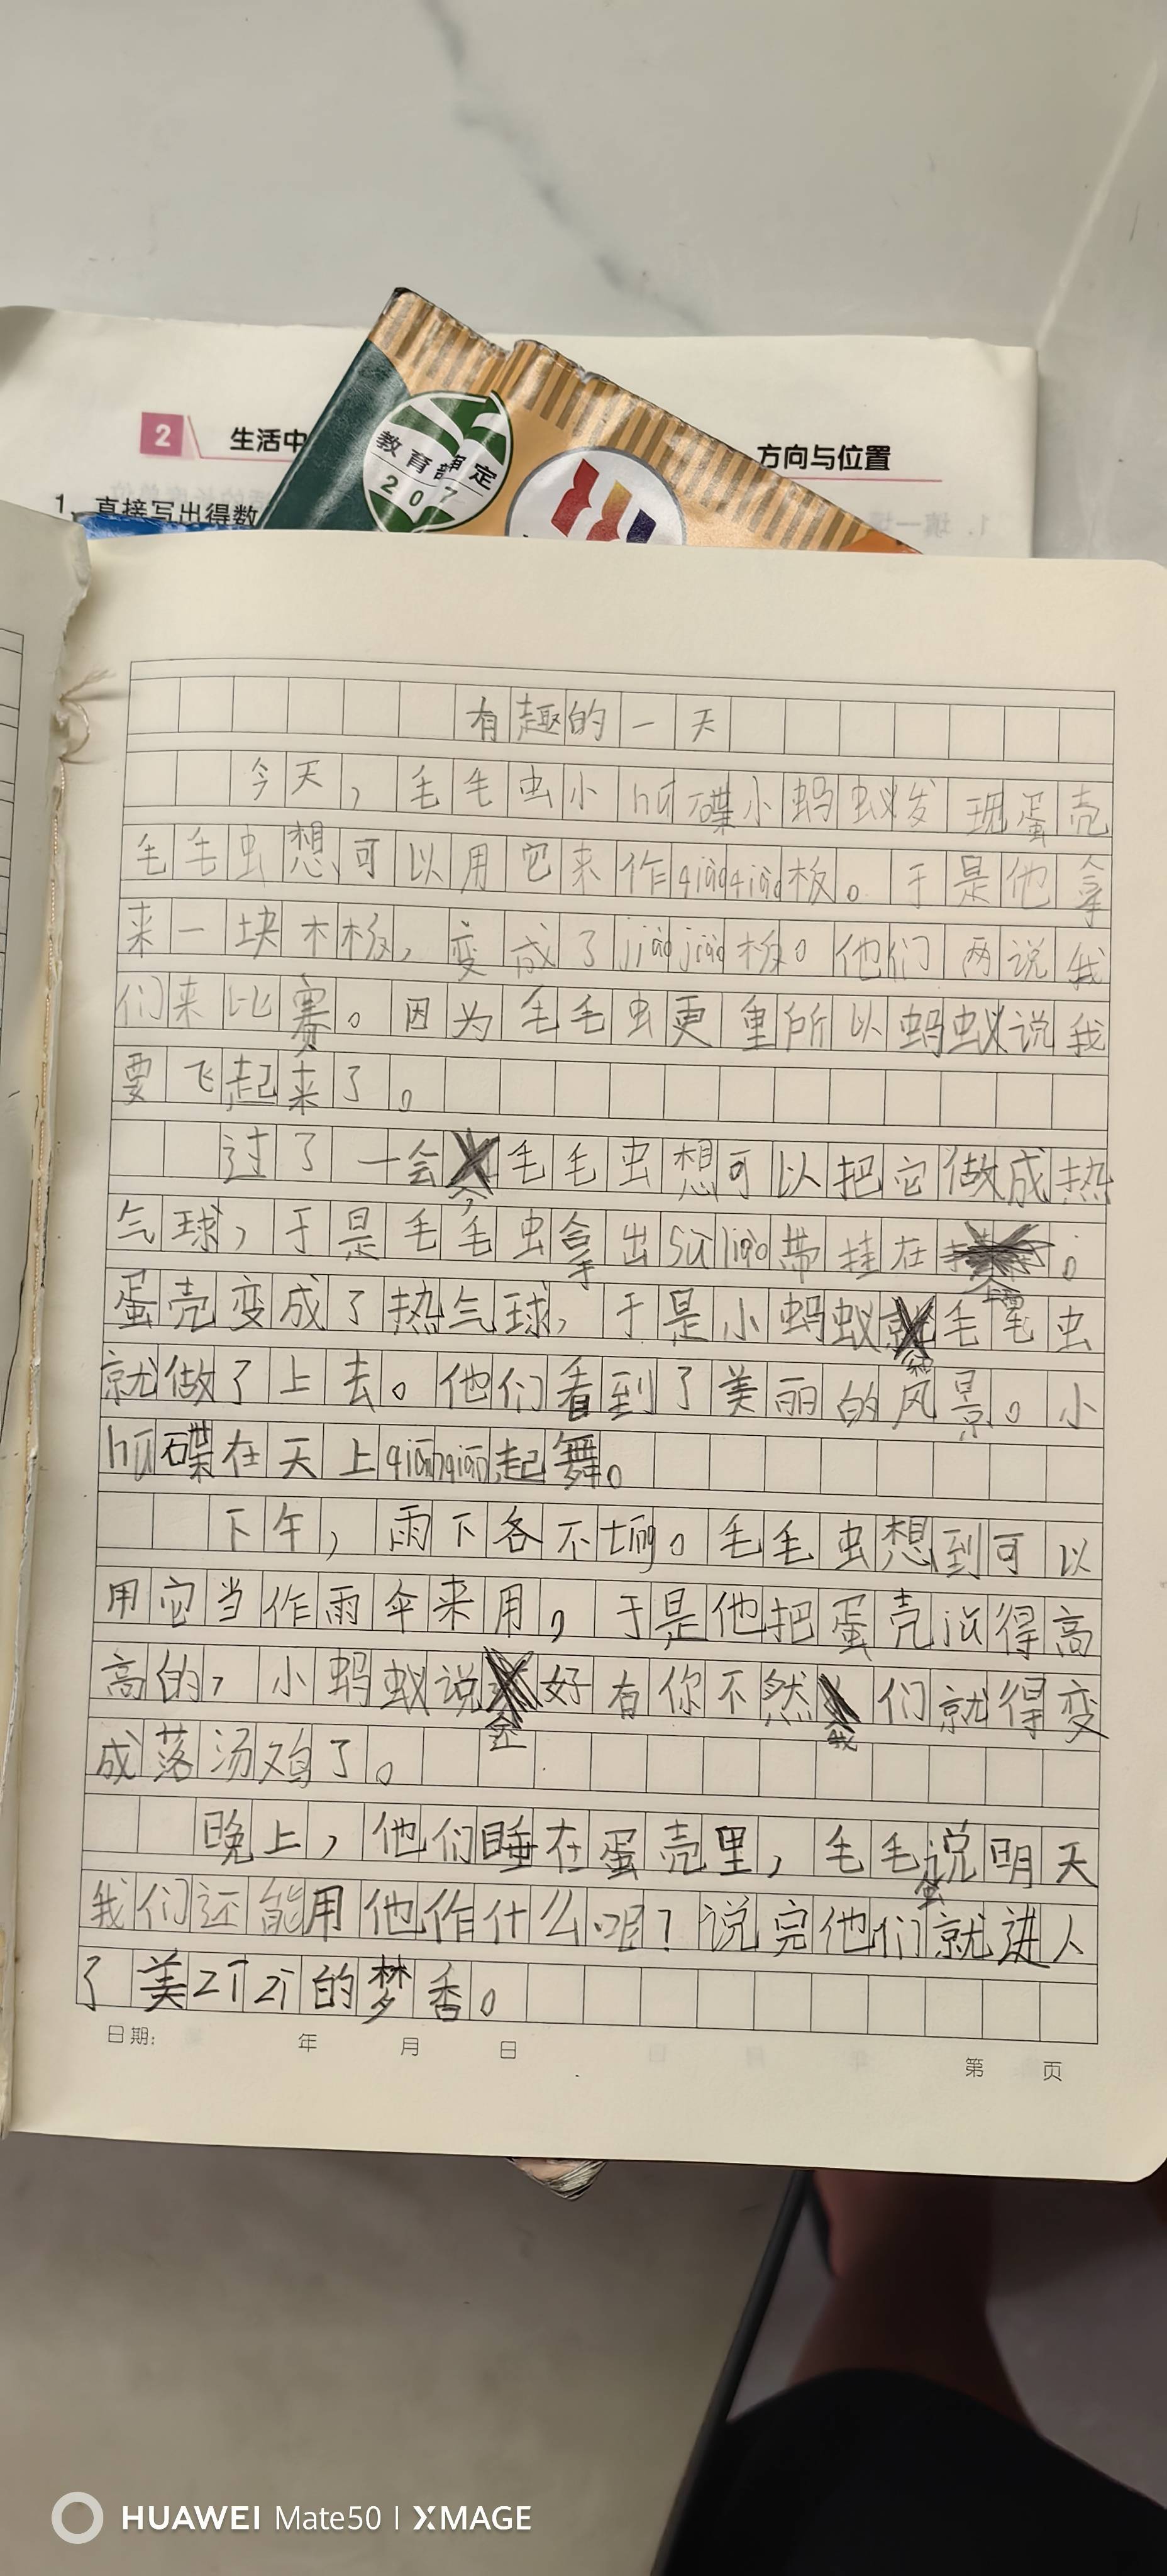 2 生活中
方向与位置
教育部审定
207
1. 直接写出得数
有趣的一天
今天，毛毛虫小hú碟小蚂蚁发现蛋壳
毛毛虫想可以用它来作qiāoqiāo板。于是他拿
来一块木板，变成了jiāojiāo板。他们两说我
们来比赛。因为毛毛虫更重所以蚂蚁说我
要飞起来了。
过了一会，毛毛虫想可以把它做成热
气球，于是毛毛虫拿出sù liào带挂在蛋壳。
蛋壳变成了热气球，于是小蚂蚁和毛毛虫
就做了上去。他们看到了美丽的风景。小
hú碟在天上qiānqiān起舞。
下午，雨下各不tíng。毛毛虫想到可以
用它当作雨伞来用，于是他把蛋壳jǔ得高
高的，小蚂蚁说还好有你不然我们就得变
成落汤鸡了。
晚上，他们睡在蛋壳里，毛毛虫说明天
我们还能用他作什么呢？说完他们就进人
了美zī zī的梦香。
日期： 年 月 日
第 页
HUAWEI Mate50 | XMAGE